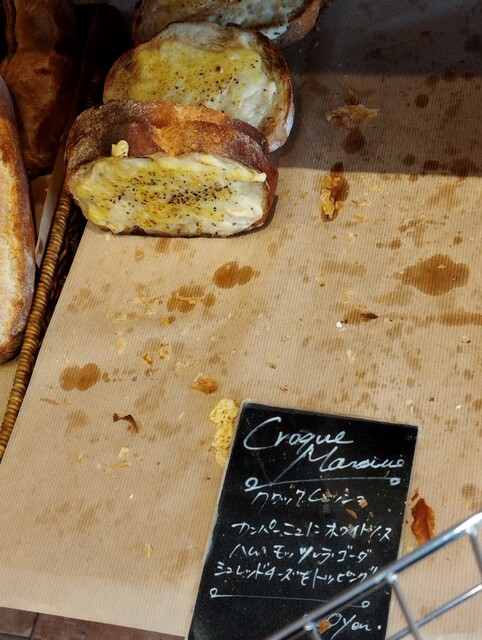 Croque
Marsieu
クロックムッシュ
カンパーニュに ホワイトソース
ハム モッツァレラ・ゴーダ
シュレッドチーズをトッピング
0yen.